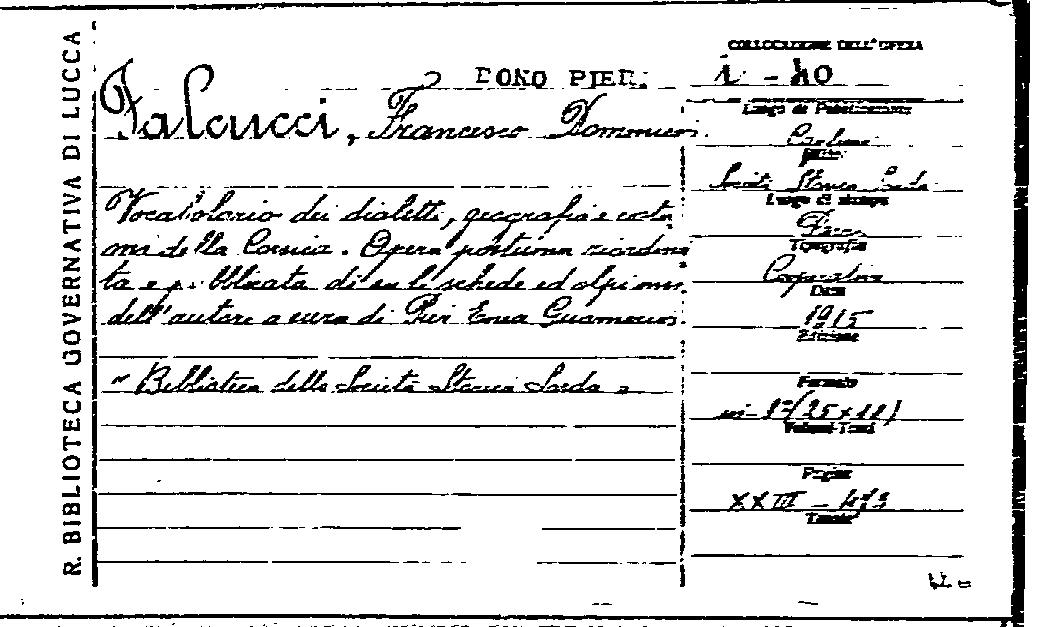 R. BIBLIOTECA GOVERNATIVA DI LUCCA
DONO PIER.
Falcucci, Francesco Domenico.
Vocabolario dei dialetti, geografia e costu
mi della Corsica. Opera postuma riordina
ta e pubblicata di su le schede ed
dell'autore a cura di Pier Enea Guarnerio.
"Biblioteca della Società Storica Sarda"
COLLOCAZIONE DELL'OPERA
Luogo di Pubblicazione
Cagliari
Società Storica Sarda
Luogo di stampa
Tipografia
Cooperativa
Data
1915
Edizione
Formato
in-8°(25×18)
Volumi-Tomi
Pagine
XXIII - 473
Tavole